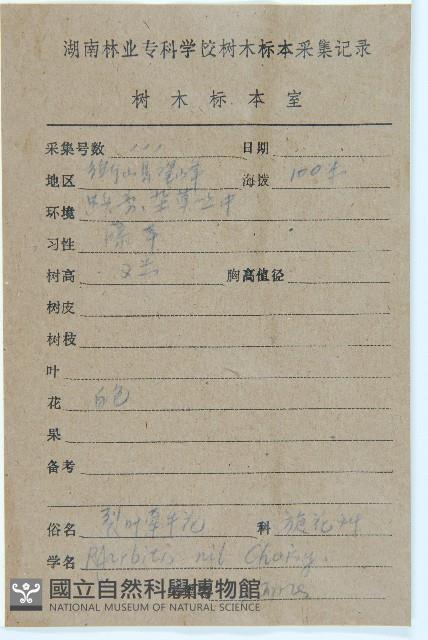 湖南林业专科学校树木标本采集记录
树木标本室
采集号数 日期
地区 衡山县 海拨 100米
环境
习性 藤本
树高 胸高值径
树皮
树枝
叶
花 白色
果
备考
俗名 裂叶牵牛花 科 旋花科
学名 Pharbitis nil Choisy.
國立自然科學博物館
NATIONAL MUSEUM OF NATURAL SCIENCE